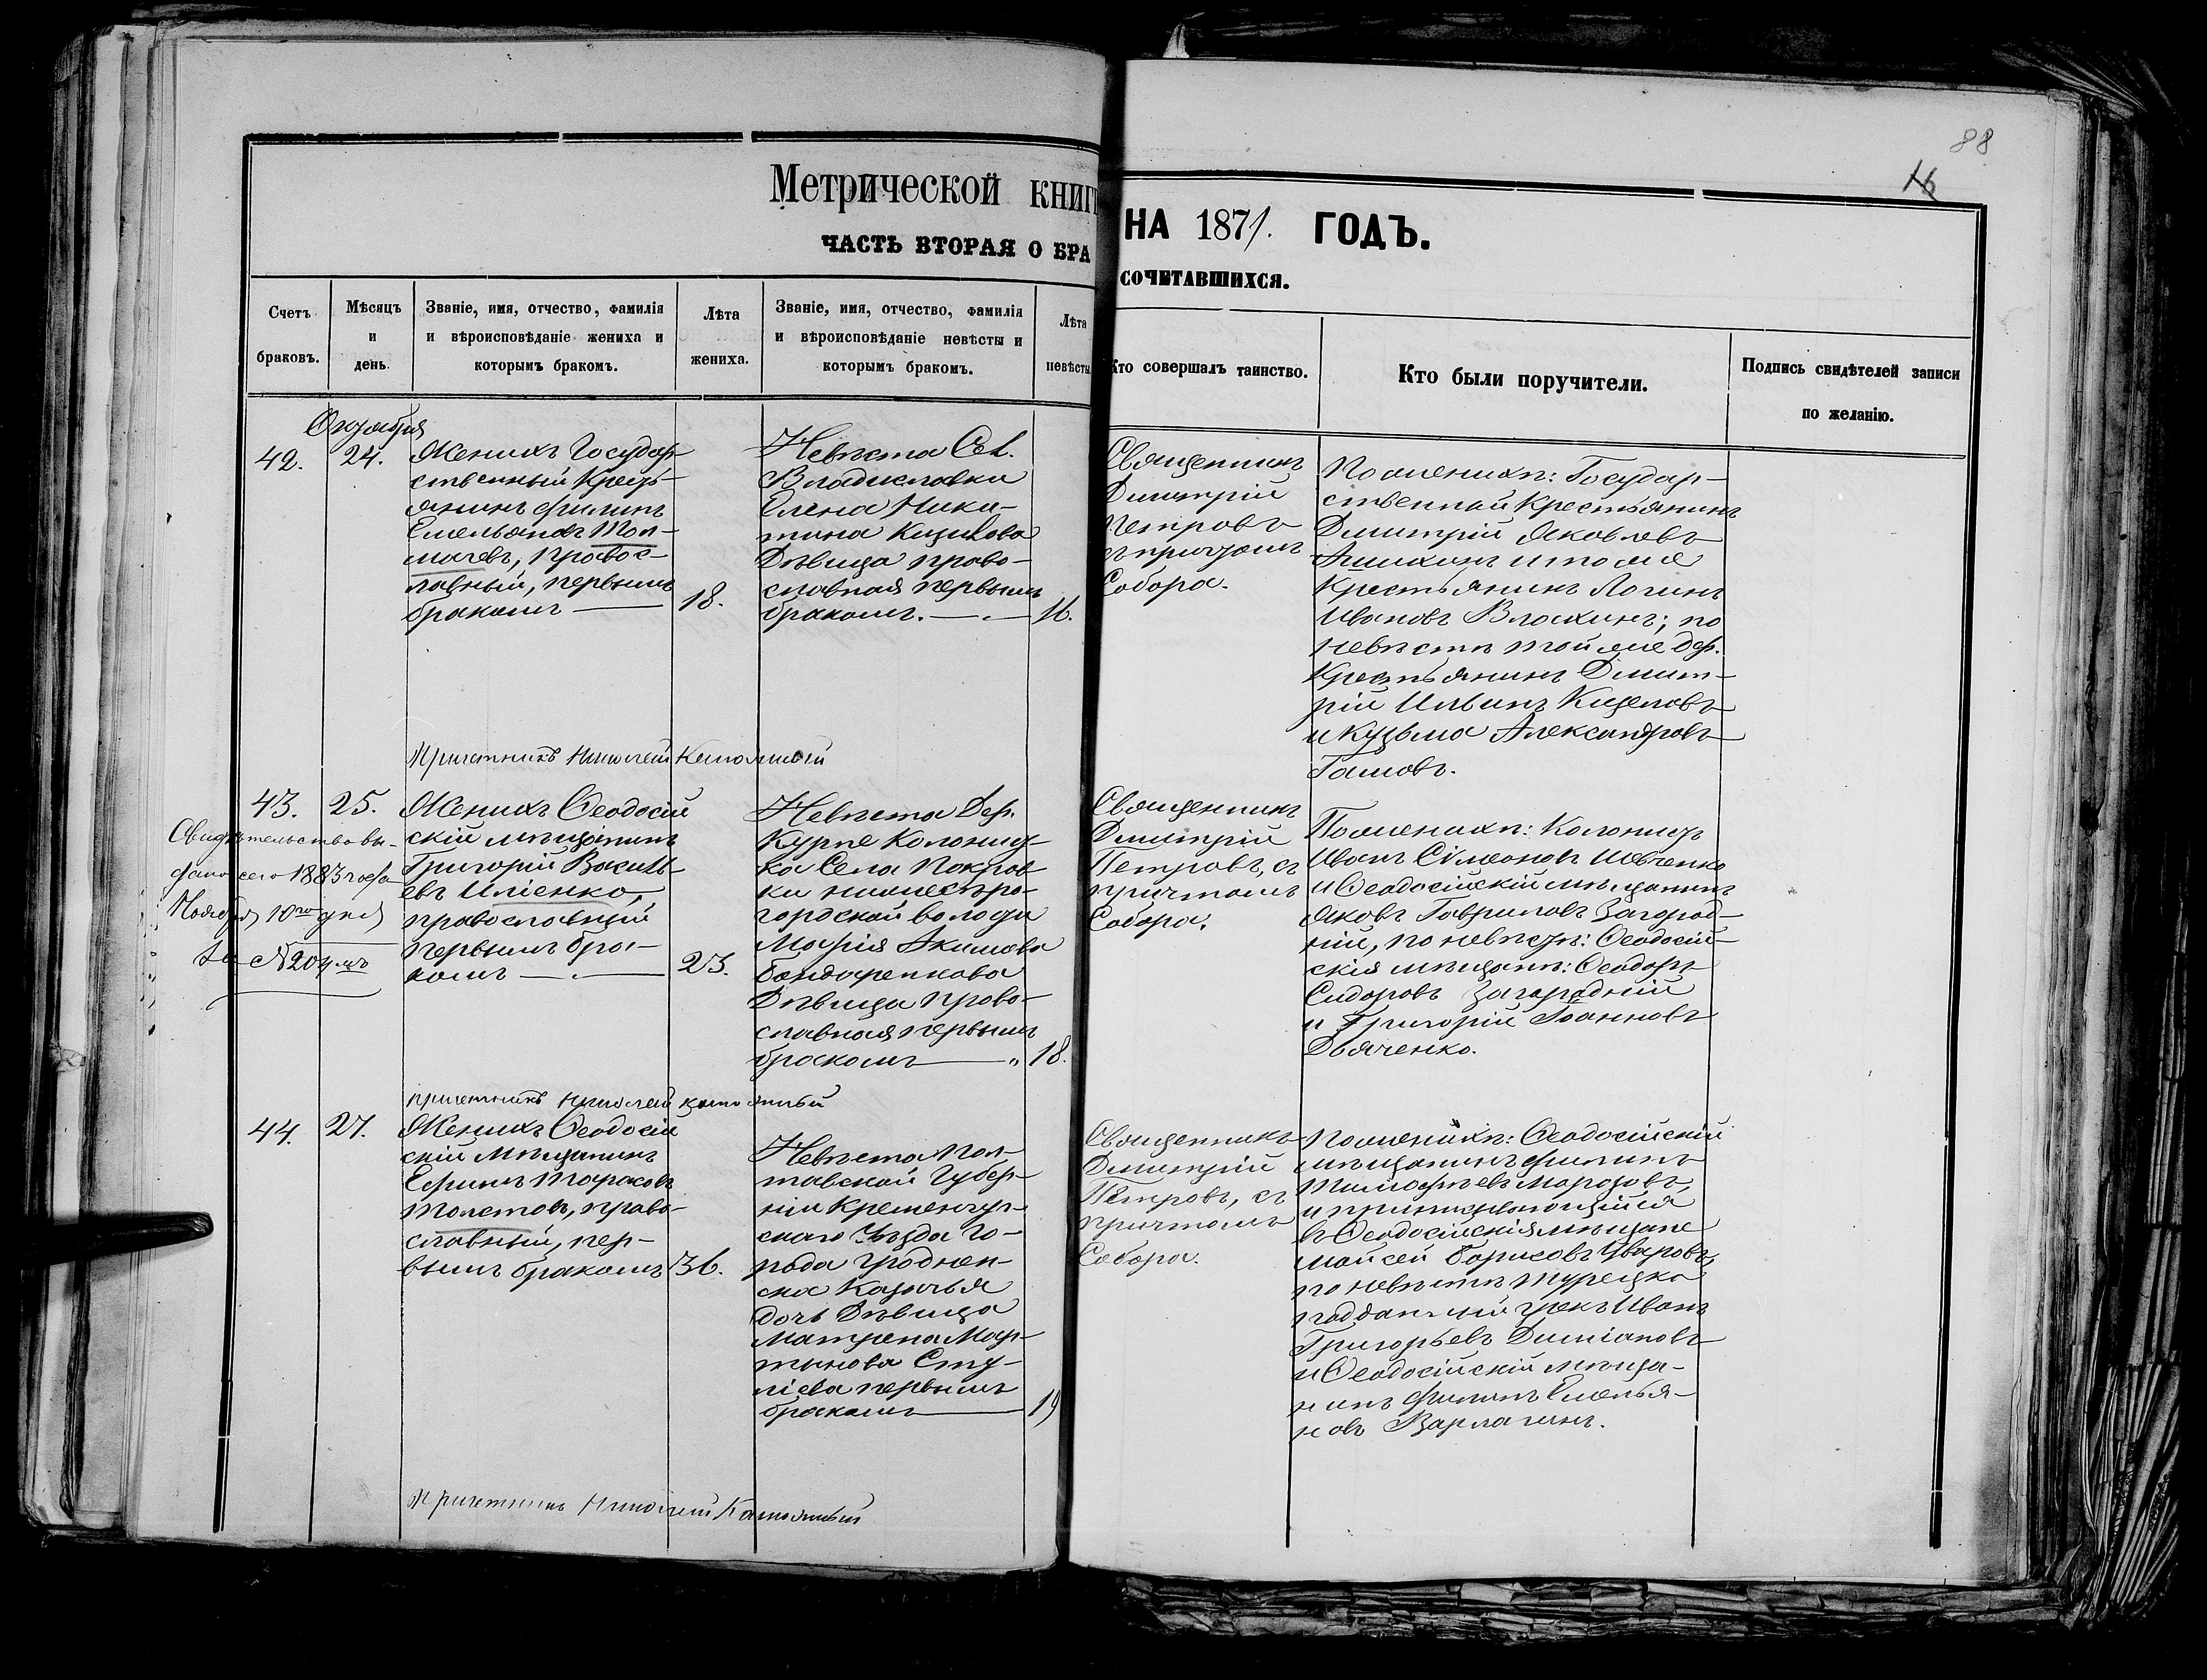 88
16
Метрической книги
НА 1871. ГОДЪ.
ЧАСТЬ ВТОРАЯ О БРА
СОЧЕТАВШИХСЯ.
Счетъ браковъ.
Мѣсяцъ и день.
Званіе, имя, отчество, фамилія
и вѣроисповѣданіе жениха и
которымъ бракомъ.
Лѣта
жениха.
Званіе, имя, отчество, фамилія
и вѣроисповѣданіе невѣсты и
которымъ бракомъ.
Лѣта
невѣсты.
Кто совершалъ таинство.
Кто были поручители.
Подпись свидѣтелей записи
по желанію.
Октября
42.
24.
Женихъ Государ-
ственный Кресть-
янинъ Филипъ
Емельяновъ Тол-
мачевъ, правос-
лавный, первымъ
бракомъ
18.
Невѣста Сел.
Владиславки
Елена Ники-
тина
Дѣвица право-
славная первымъ
бракомъ.
16.
Священникъ
Димитрій
Петровъ
съ причтомъ
Собора.
По женихѣ: Государ-
ственный Крестьянинъ
Димитрій Яковлевъ
и тоже
Крестьянинъ Логинъ
Ивановъ Влохинъ; по
невѣстѣ той же дер.
Крестьянинъ Димит-
рій Ильинъ
и Кузьма Александровъ
Гамовъ.
Причетникъ Николай
43.
25.
Свидѣтельство вы-
дано сего 1883 года
Ноября 10го дня
за № 204мъ
Женихъ Ѳеодосій
скій мѣщанинъ
Григорій Василь-
евъ Иліенко,
православный
первымъ бра-
комъ
23.
Невѣста Дер.
Курпе Колонист-
ка Села Покров-
ки
городской волости
Марія Акимова
Бондаренкова
Дѣвица право-
славная первымъ
бракомъ
18.
Священникъ
Димитрій
Петровъ, съ
причтомъ
Собора.
По женихѣ: Колонистъ
Иванъ Сімеоновъ Шевченко
и Ѳеодосійскій мѣщанинъ
Яковъ Гавриловъ Загород-
ній, по невѣстѣ: Ѳеодосій-
скія мѣщане: Ѳеодоръ
Сидоровъ Загородній
и Григорій Іоанновъ
Дьяченко.
причетникъ Николай
44.
27.
Женихъ Ѳеодосій
скій Мѣщанинъ
Ефимъ Тарасовъ
Толстовъ, право-
славный, пер-
вымъ бракомъ
36.
Невѣста Пол-
тавской Губер-
ніи Кременчуг-
скаго Уѣзда Го-
рода
Казачья
дочь Дѣвица
Матрена Мар-
тынова Сту-
піева первымъ
бракомъ
19
Священникъ
Димитрій
Петровъ, съ
причтомъ
Собора.
По женихѣ: Ѳеодосійскій
мѣщанинъ Филипъ
Тимофѣевъ Морозовъ,
и
въ Ѳеодосійскія мѣщане
Мойсей Борисовъ Уваровъ,
по невѣстѣ Турецко
подданный грекъ Иванъ
Григорьевъ Диміановъ
и Ѳеодосійскій мѣща-
нинъ Филипъ Емелья-
новъ Варлагинъ.
Причетникъ Николай